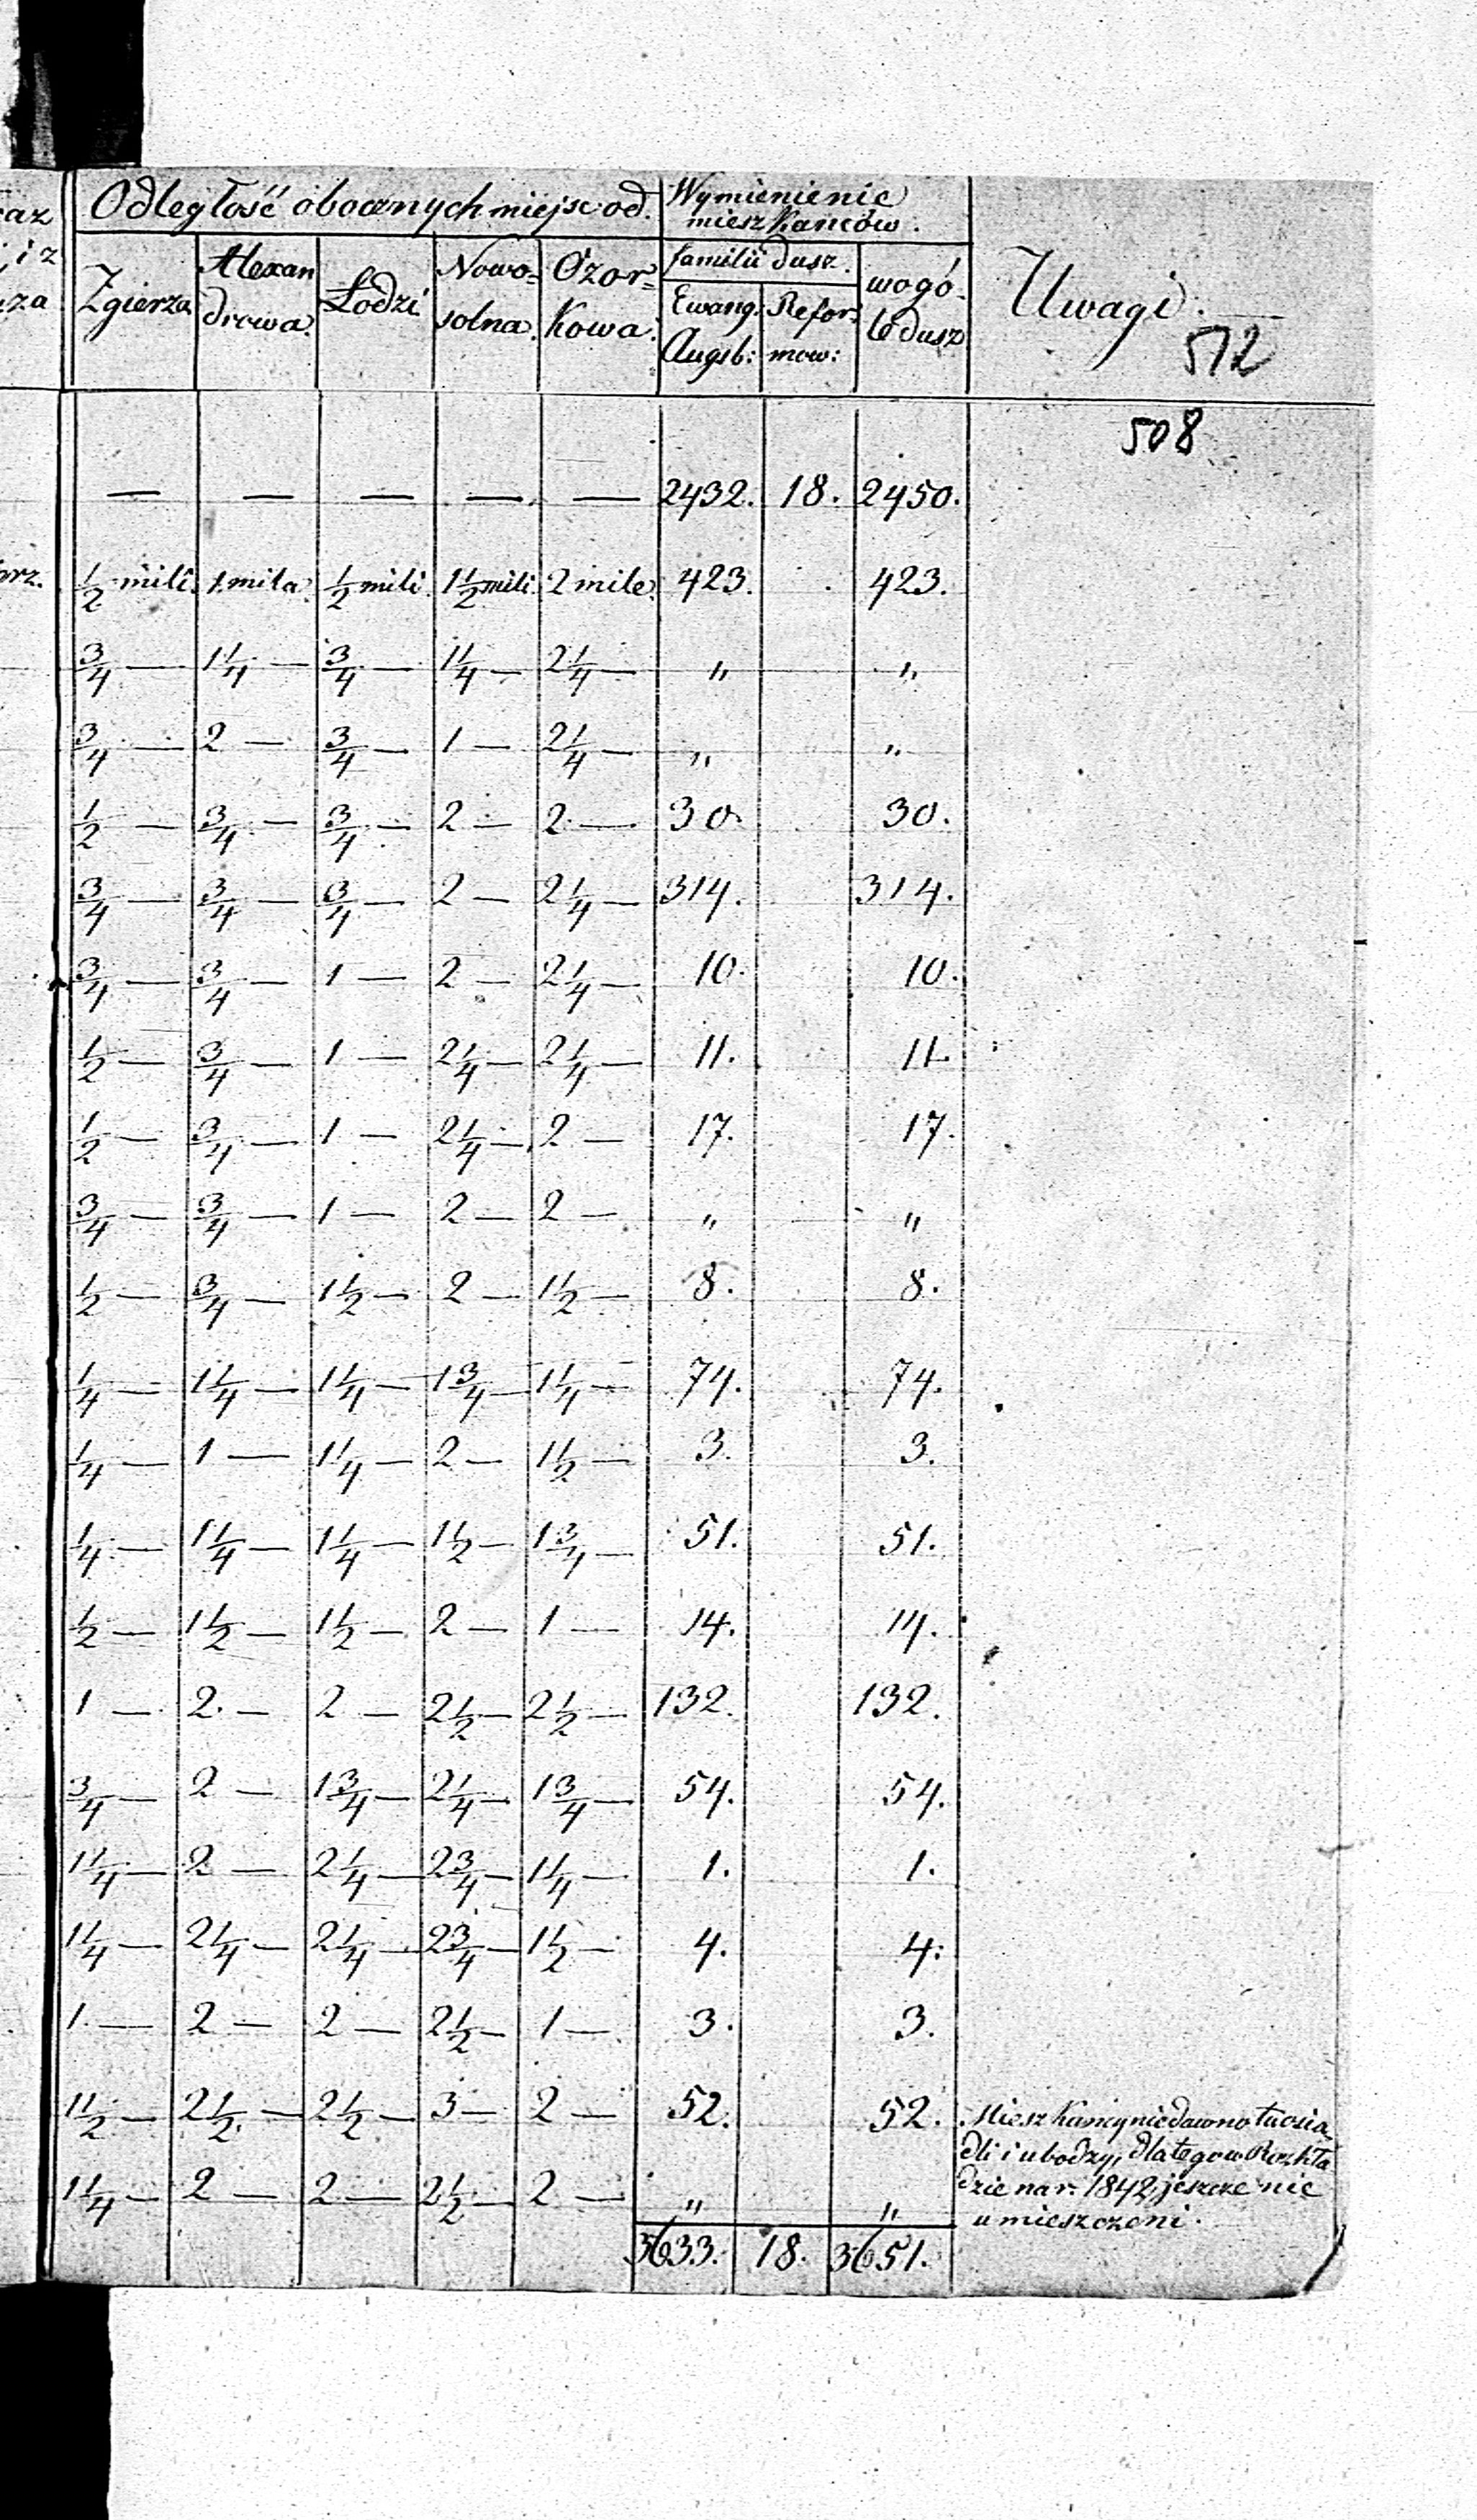 Odległość obocznych miejsc od. Wymienienie
mieszkańców.
az
i z
za
Zgierza Alexan
drowa. Łodzi Nowo=
solna. Ozor=
kowa. familii dusz. wogó-
le dusz Uwagi.
Ewang. Augsb: Refor=
mow:
512
508
— — — — — 2432. 18. 2450.
rz. 1/2 mili. 1. mila. 1/2 mili. 1 1/2 mili. 2 mile. 423. 423.
3/4 — 1 1/4 — 3/4 — 1 1/4 — 2 1/4 — " "
3/4 — 2 — 3/4 — 1 — 2 1/4 — " "
1/2 — 3/4 — 3/4 — 2 — 2 — 30. 30.
3/4 — 3/4 — 3/4 — 2 — 2 1/4 — 314. 314.
3/4 — 3/4 — 1 — 2 — 2 1/4 — 10. 10.
1/2 — 3/4 — 1 — 2 1/4 — 2 1/4 — 11. 11.
1/2 — 3/4 — 1 — 2 1/4 — 2 — 17. 17.
3/4 — 3/4 — 1 — 2 — 2 — " "
1/2 — 3/4 — 1 1/2 — 2 — 1 1/2 — 8. 8.
1/4 — 1 1/4 — 1 1/4 — 1 3/4 — 1 1/4 — 74. 74.
1/4 — 1 — 1 1/4 — 2 — 1 1/2 — 3. 3.
1/4 — 1 1/4 — 1 1/4 — 1 1/2 — 1 3/4 — 51. 51.
1/2 — 1 1/2 — 1 1/2 — 2 — 1 — 14. 14.
1 — 2. — 2 — 2 1/2 — 2 1/2 — 132. 132.
3/4 — 2 — 1 3/4 — 2 1/4 — 1 3/4 — 54. 54.
1 1/4 — 2 — 2 1/4 — 2 3/4 — 1 1/4 — 1. 1.
1 1/4 — 2 1/4 — 2 1/4 — 2 3/4 — 1 1/2 — 4. 4.
1. — 2 — 2 — 2 1/2 — 1 — 3. 3.
1 1/2 — 2 1/2 — 2 1/2 — 3 — 2 — 52. 52. Mieszkańcy niedawno tu osia
dli i ubodzy, dlatego w Rozkła
1 1/4 — 2 — 2 — 2 1/2 — 2 — " " dzie na r. 1842 jeszcze nie
umieszczeni.
3633. 18. 3651.